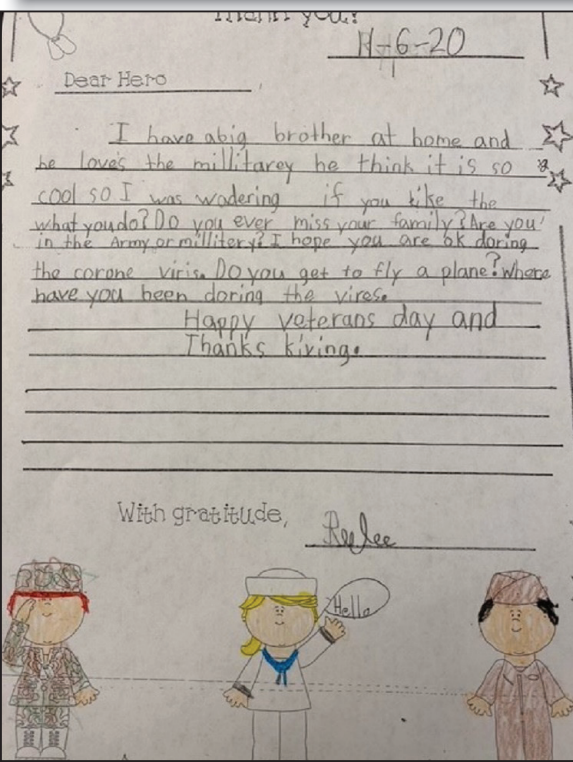 Thank you!
11-6-20
Dear Hero
I have abig brother at home and
he loves the millitarey he think it is so
cool so I was wadering if you like the
what you do? Do you ever miss your family? Are you
in the Army or millitery? I hope you are ok doring
the corone viris. Do you get to fly a plane? Where
have you been doring the vires.
Happy veterans day and
Thanks kiving.
With gratitude, Reelee
Hello